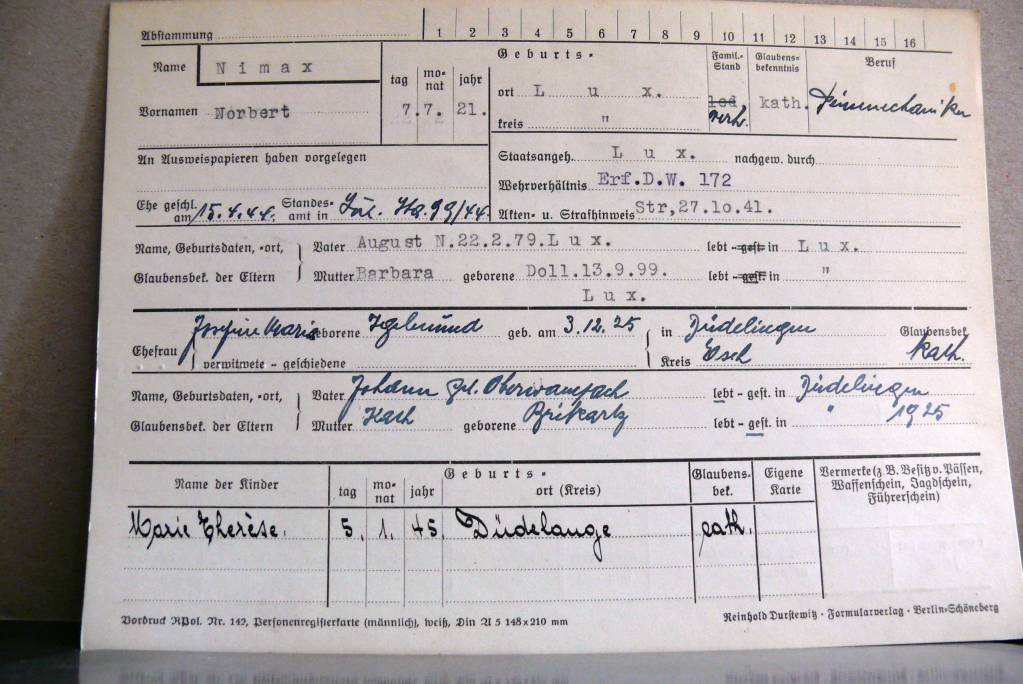 Abstammung 1 2 3 4 5 6 7 8 9 10 11 12 13 14 15 16
Name Nimax
tag monat jahr
Geburts-
Famil.-Stand Glaubensbekenntnis Beruf
ort Lux.
Vornamen Norbert 7.7. 21.
led. verh. kath. Feinmechaniker
kreis "
An Ausweispapieren haben vorgelegen
Staatsangeh. Lux. nachgew. durch
Wehrverhältnis Erf.D.W. 172
Ehe geschl. am 15.4.44. Standesamt in Lux. 99/44.
Akten- u. Strafhinweis Str,27.10.41.
Name, Geburtsdaten, -ort, Vater August N.22.2.79.Lux. lebt - gest. in Lux.
Glaubensbek. der Eltern Mutter Barbara geborene Doll.13.9.99. lebt - gest. in "
Lux.
Josefine Marie geborene geb. am 3.12.25 in Düdelingen Glaubensbek.
Ehefrau verwitwete - geschiedene Kreis Esch kath.
Name, Geburtsdaten, -ort, Vater Johann lebt - gest. in Düdelingen
Glaubensbek. der Eltern Mutter Kath geborene lebt - gest. in " 1925
Name der Kinder
Geburts-
tag monat jahr ort (Kreis)
Glaubensbek. Eigene Karte
Vermerke (z.B. Besitz v. Pässen,
Waffenschein, Jagdschein,
Führerschein)
Marie Therèse. 5. 1. 45. Düdelange cath.
Vordruck RPol. Nr. 142, Personenregisterkarte (männlich), weiß, Din A 5 148x210 mm
Reinhold Durstewitz · Formularverlag · Berlin-Schöneberg